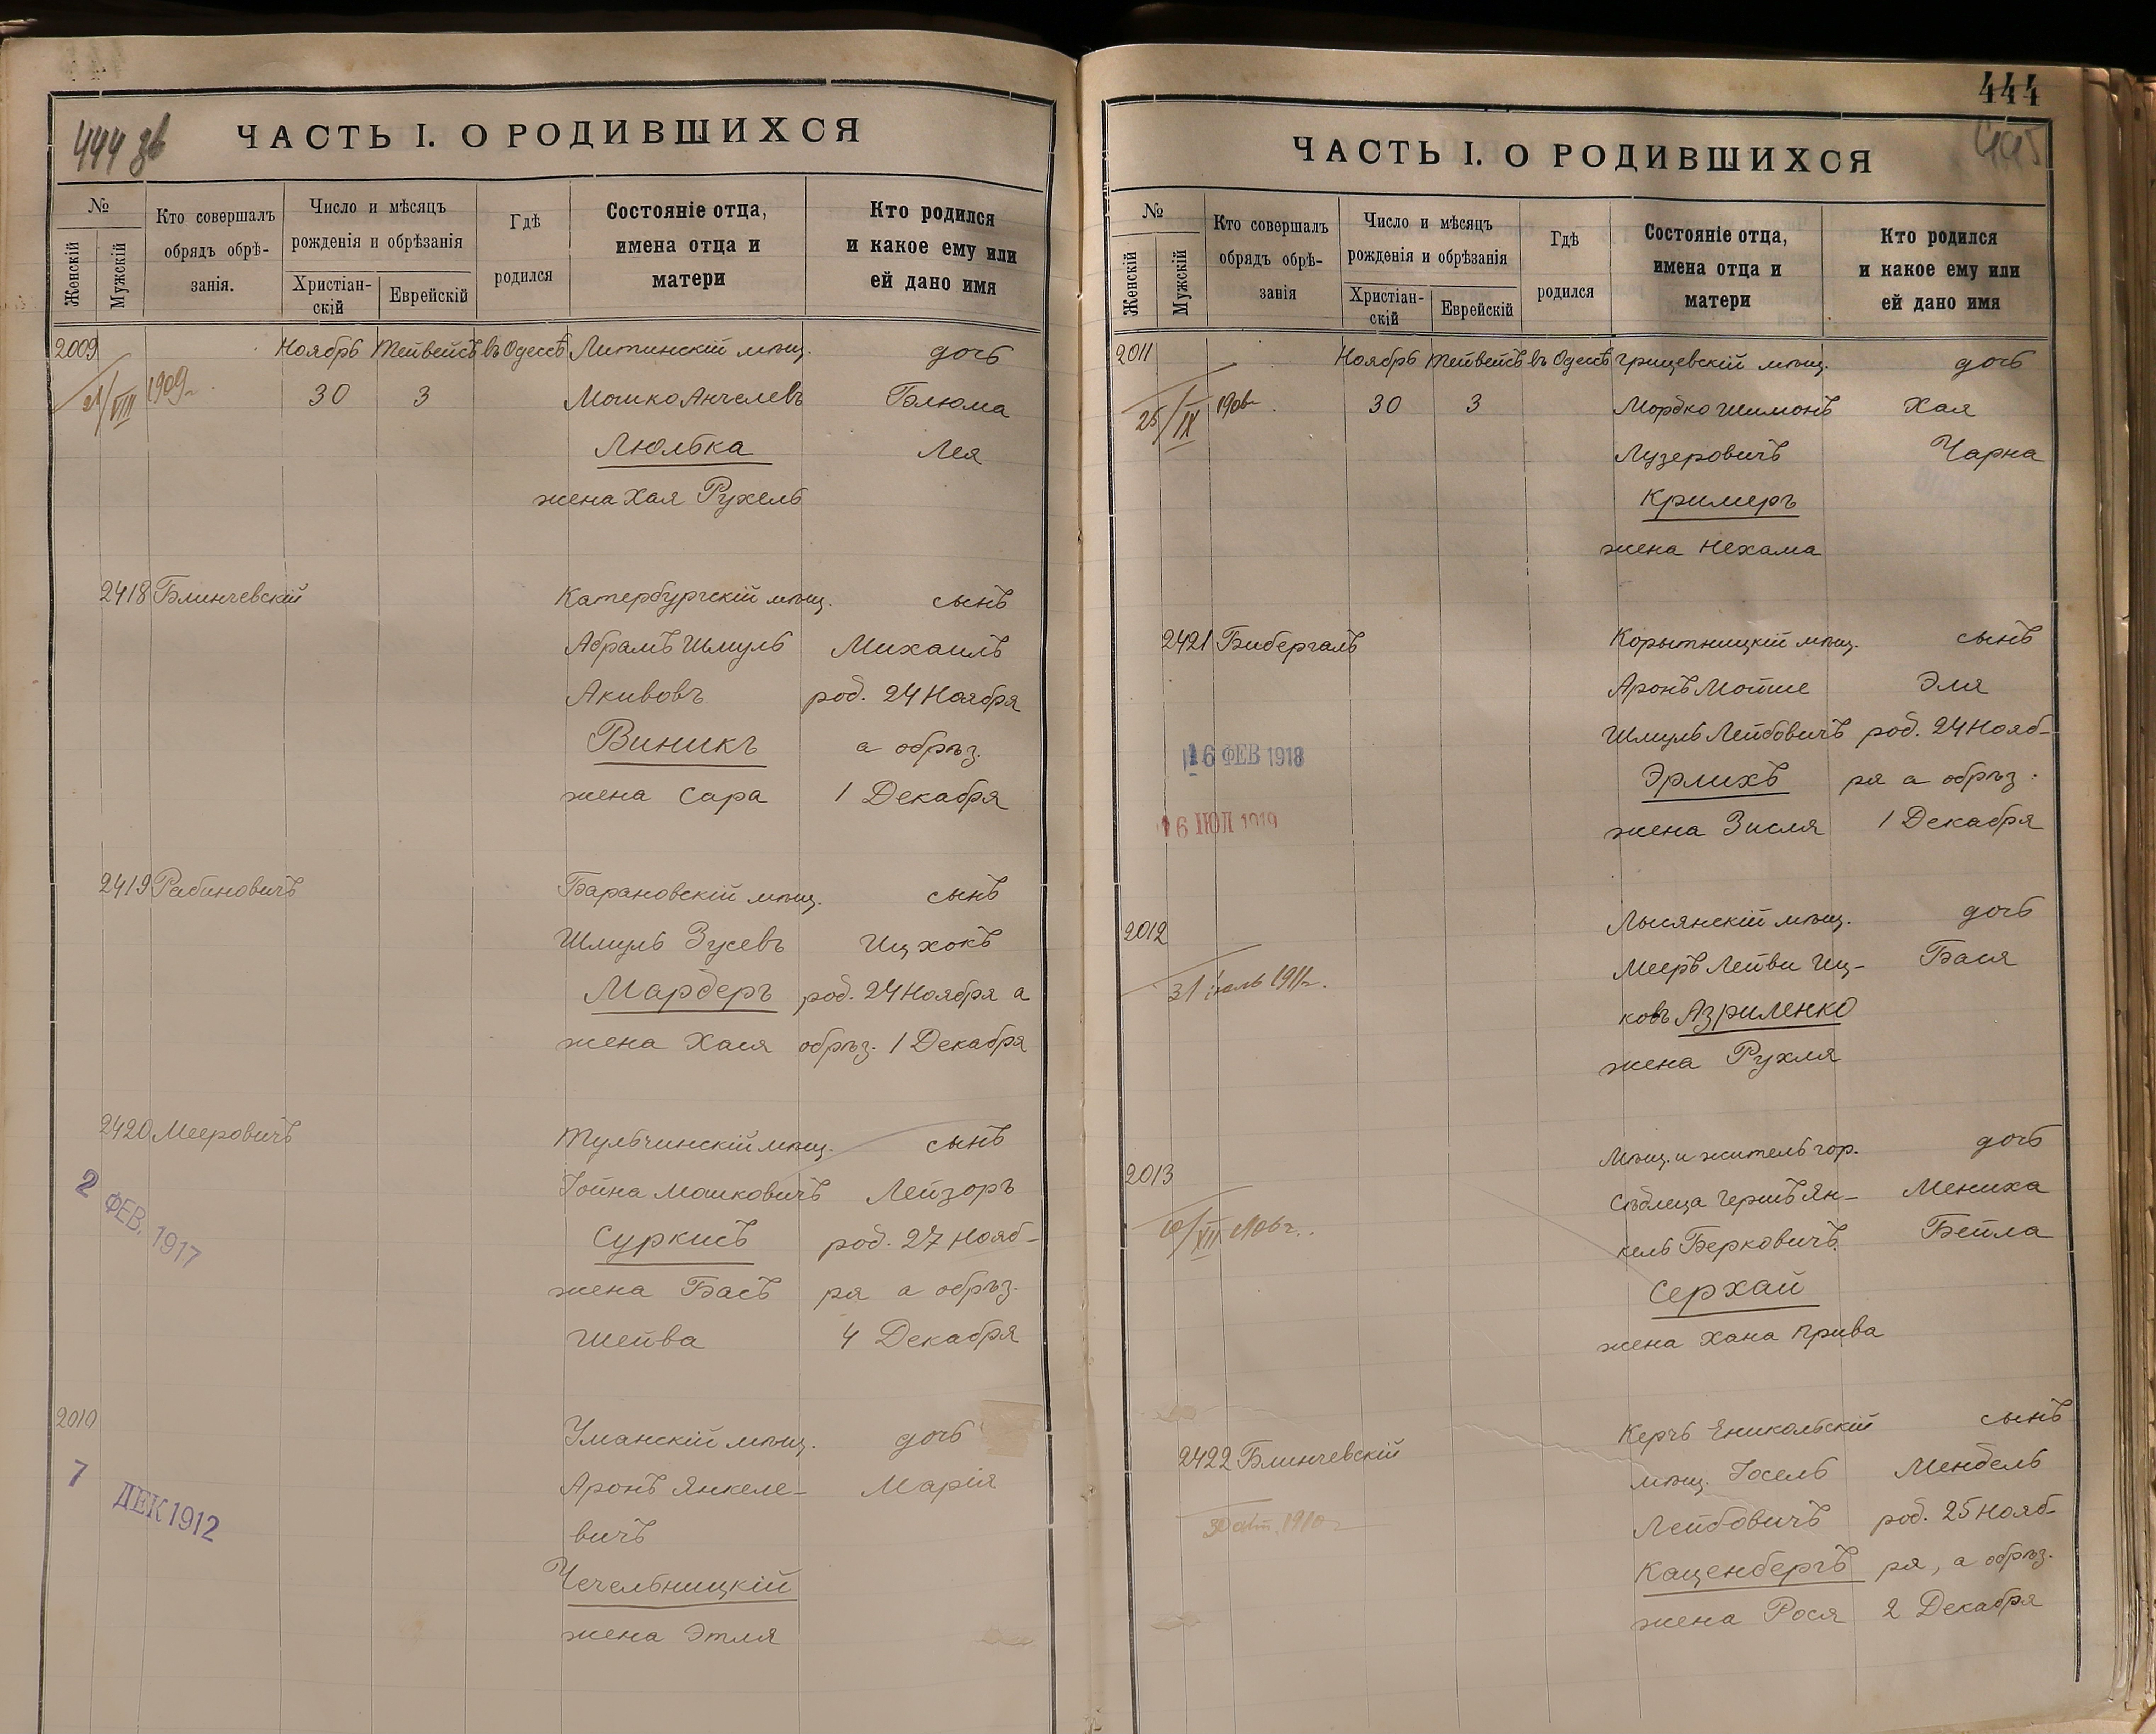 444 зв
ЧАСТЬ I. О РОДИВШИХСЯ
№
Женскій
Мужскій
Кто совершалъ
обрядъ обрѣ-
занія.
Число и мѣсяцъ
рожденія и обрѣзанія
Христіан-
скій
Еврейскій
Гдѣ
родился
Состояніе отца,
имена отца и
матери
Кто родился
и какое ему или
ей дано имя
2009 Ноябрь Тейвейсъ въ Одессѣ Литинскій мѣщ. дочь
21/VIII 1909 г. 30 3 Мошко Анчелевъ Блюма
Люлька Лея
жена Хая Рухель
2418 Блинчевскій Катербургскій мѣщ. сынъ
Абрамъ Шмуль Михаилъ
Акивовъ род. 24 Ноября
Виникъ а обрѣз.
жена Сара 1 Декабря
2419 Рабиновичъ Барановскій мѣщ. сынъ
Шмуль Зусевъ Ицхокъ
Мардеръ род. 24 Ноября а
жена Хася обрѣз. 1 Декабря
2420 Мееровичъ Тульчинскій мѣщ. сынъ
Іойна Мошковичъ Лейзоръ
2 ФЕВ. 1917
Суркисъ род. 27 Нояб-
жена Бась ря а обрѣз.
Шейва 4 Декабря
2010 Уманскій мѣщ. дочь
7 ДЕК 1912
Аронъ Янкеле- Марія
вичъ
Чечельницкій
жена Этля
444
445
ЧАСТЬ I. О РОДИВШИХСЯ
№
Женскій
Мужскій
Кто совершалъ
обрядъ обрѣ-
занія
Число и мѣсяцъ
рожденія и обрѣзанія
Христіан-
скій
Еврейскій
Гдѣ
родился
Состояніе отца,
имена отца и
матери
Кто родился
и какое ему или
ей дано имя
2011 Ноябрь Тейвейсъ въ Одессѣ Грицевскій мѣщ. дочь
25/IX 30 3 Мордко Шимонъ Хая
Лузеровичъ Чарна
Кримеръ
жена Нехама
2421 Бибергалъ Корытницкій мѣщ. сынъ
Аронъ Мотше Эля
Шмуль Лейбовичъ род. 24 Нояб-
16 ФЕВ 1918
Эрлихъ ря а обрѣз.
16 ІЮЛ 1919
жена Зисля 1 Декабря
2012 Лысянскій мѣщ. дочь
31 іюль 1911 г. Мееръ Лейви Иц- Бася
ковъ Азриленко
жена Рухля
2013 Мѣщ. и житель гор. дочь
Сѣдлеца Гершъ Ян- Мениха
10/XII 1906 г. кель Берковичъ Бейла
Серхай
жена Хана Прива
2422 Блинчевскій Керчь Еникольскій сынъ
мѣщ. Іосель Мендель
Лейбовичъ род. 25 Нояб-
Каценбергъ ря, а обрѣз.
жена Рося 2 Декабря